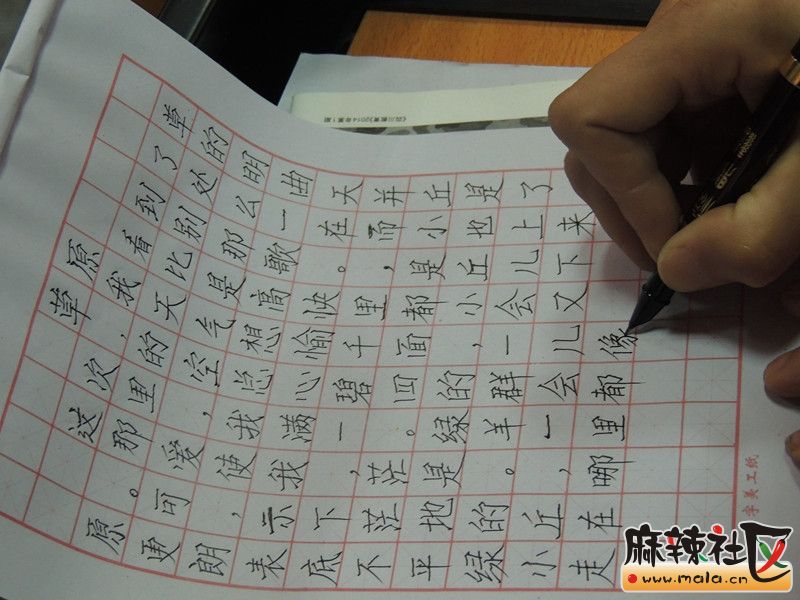 草原
这次，我看到了草
原。那里的天比别处的
更可爱，空气是那么明
朗，使我总想高歌一曲
表示我满心愉快。在天
底下，一碧千里，而并
不茫茫。四面都是小丘
平地是绿的，小丘也是
绿的。羊群一会儿上了
小丘，一会儿又下来
走在哪里都像
字美工纸
《四川教育》2014年第1期
麻辣社区
www.mala.cn